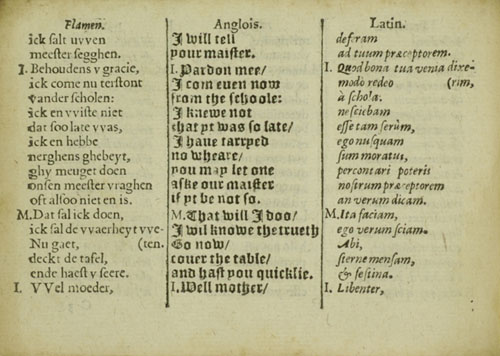 Flamen.
ick salt uvven
meester segghen.
I. Behoudens v gracie,
ick come nu terstont
vander scholen:
ick en vviste niet
dat soo late vvas,
ick en hebbe
nerghens ghebeyt,
ghy meuget doen
onsen meester vraghen
oft alsoo niet en is.
M. Dat sal ick doen,
ick sal de vvaerheyt vve-
Nu gaet, (ten.
deckt de tafel,
ende haest v seere.
I. VVel moeder,
Anglois.
J will tell
your maister.
I. Pardon mee/
J com euen now
from the schoole:
J knewe not
that yt was so late/
J haue tarryed
no wheare/
you may let one
aske our maister
if yt be not so.
M. That will J doo/
J wil knowe the trueth
Go now/
couer the table/
and hast you quicklie.
I. Well mother/
Latin.
deferam
ad tuum præceptorem.
I. Quod bona tua venia dixe-
modo redeo (rim,
à schola.
nesciebam
esse tam serùm,
ego nusquam
sum moratus,
percontari poteris
nostrum præceptorem
an verum dicam.
M. Ita faciam,
ego verum sciam.
Abi,
sterne mensam,
& festina.
I. Libenter,